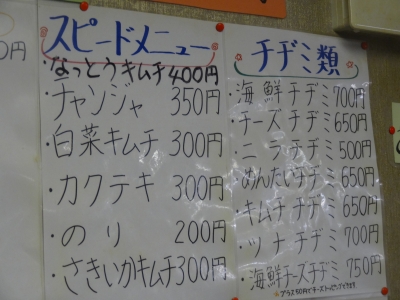 0円
スピードメニュー
・なっとうキムチ 400円
・チャンジャ 350円
・白菜キムチ 300円
・カクテキ 300円
・のり 200円
・さきいかキムチ 300円
チヂミ類
・海鮮チヂミ 700円
・チーズチヂミ 650円
・ニラチヂミ 500円
・めんたいチヂミ 650円
・キムチチヂミ 650円
・ツナチヂミ 700円
・海鮮チーズチヂミ 750円
プラス50円でチーズトッピングできます